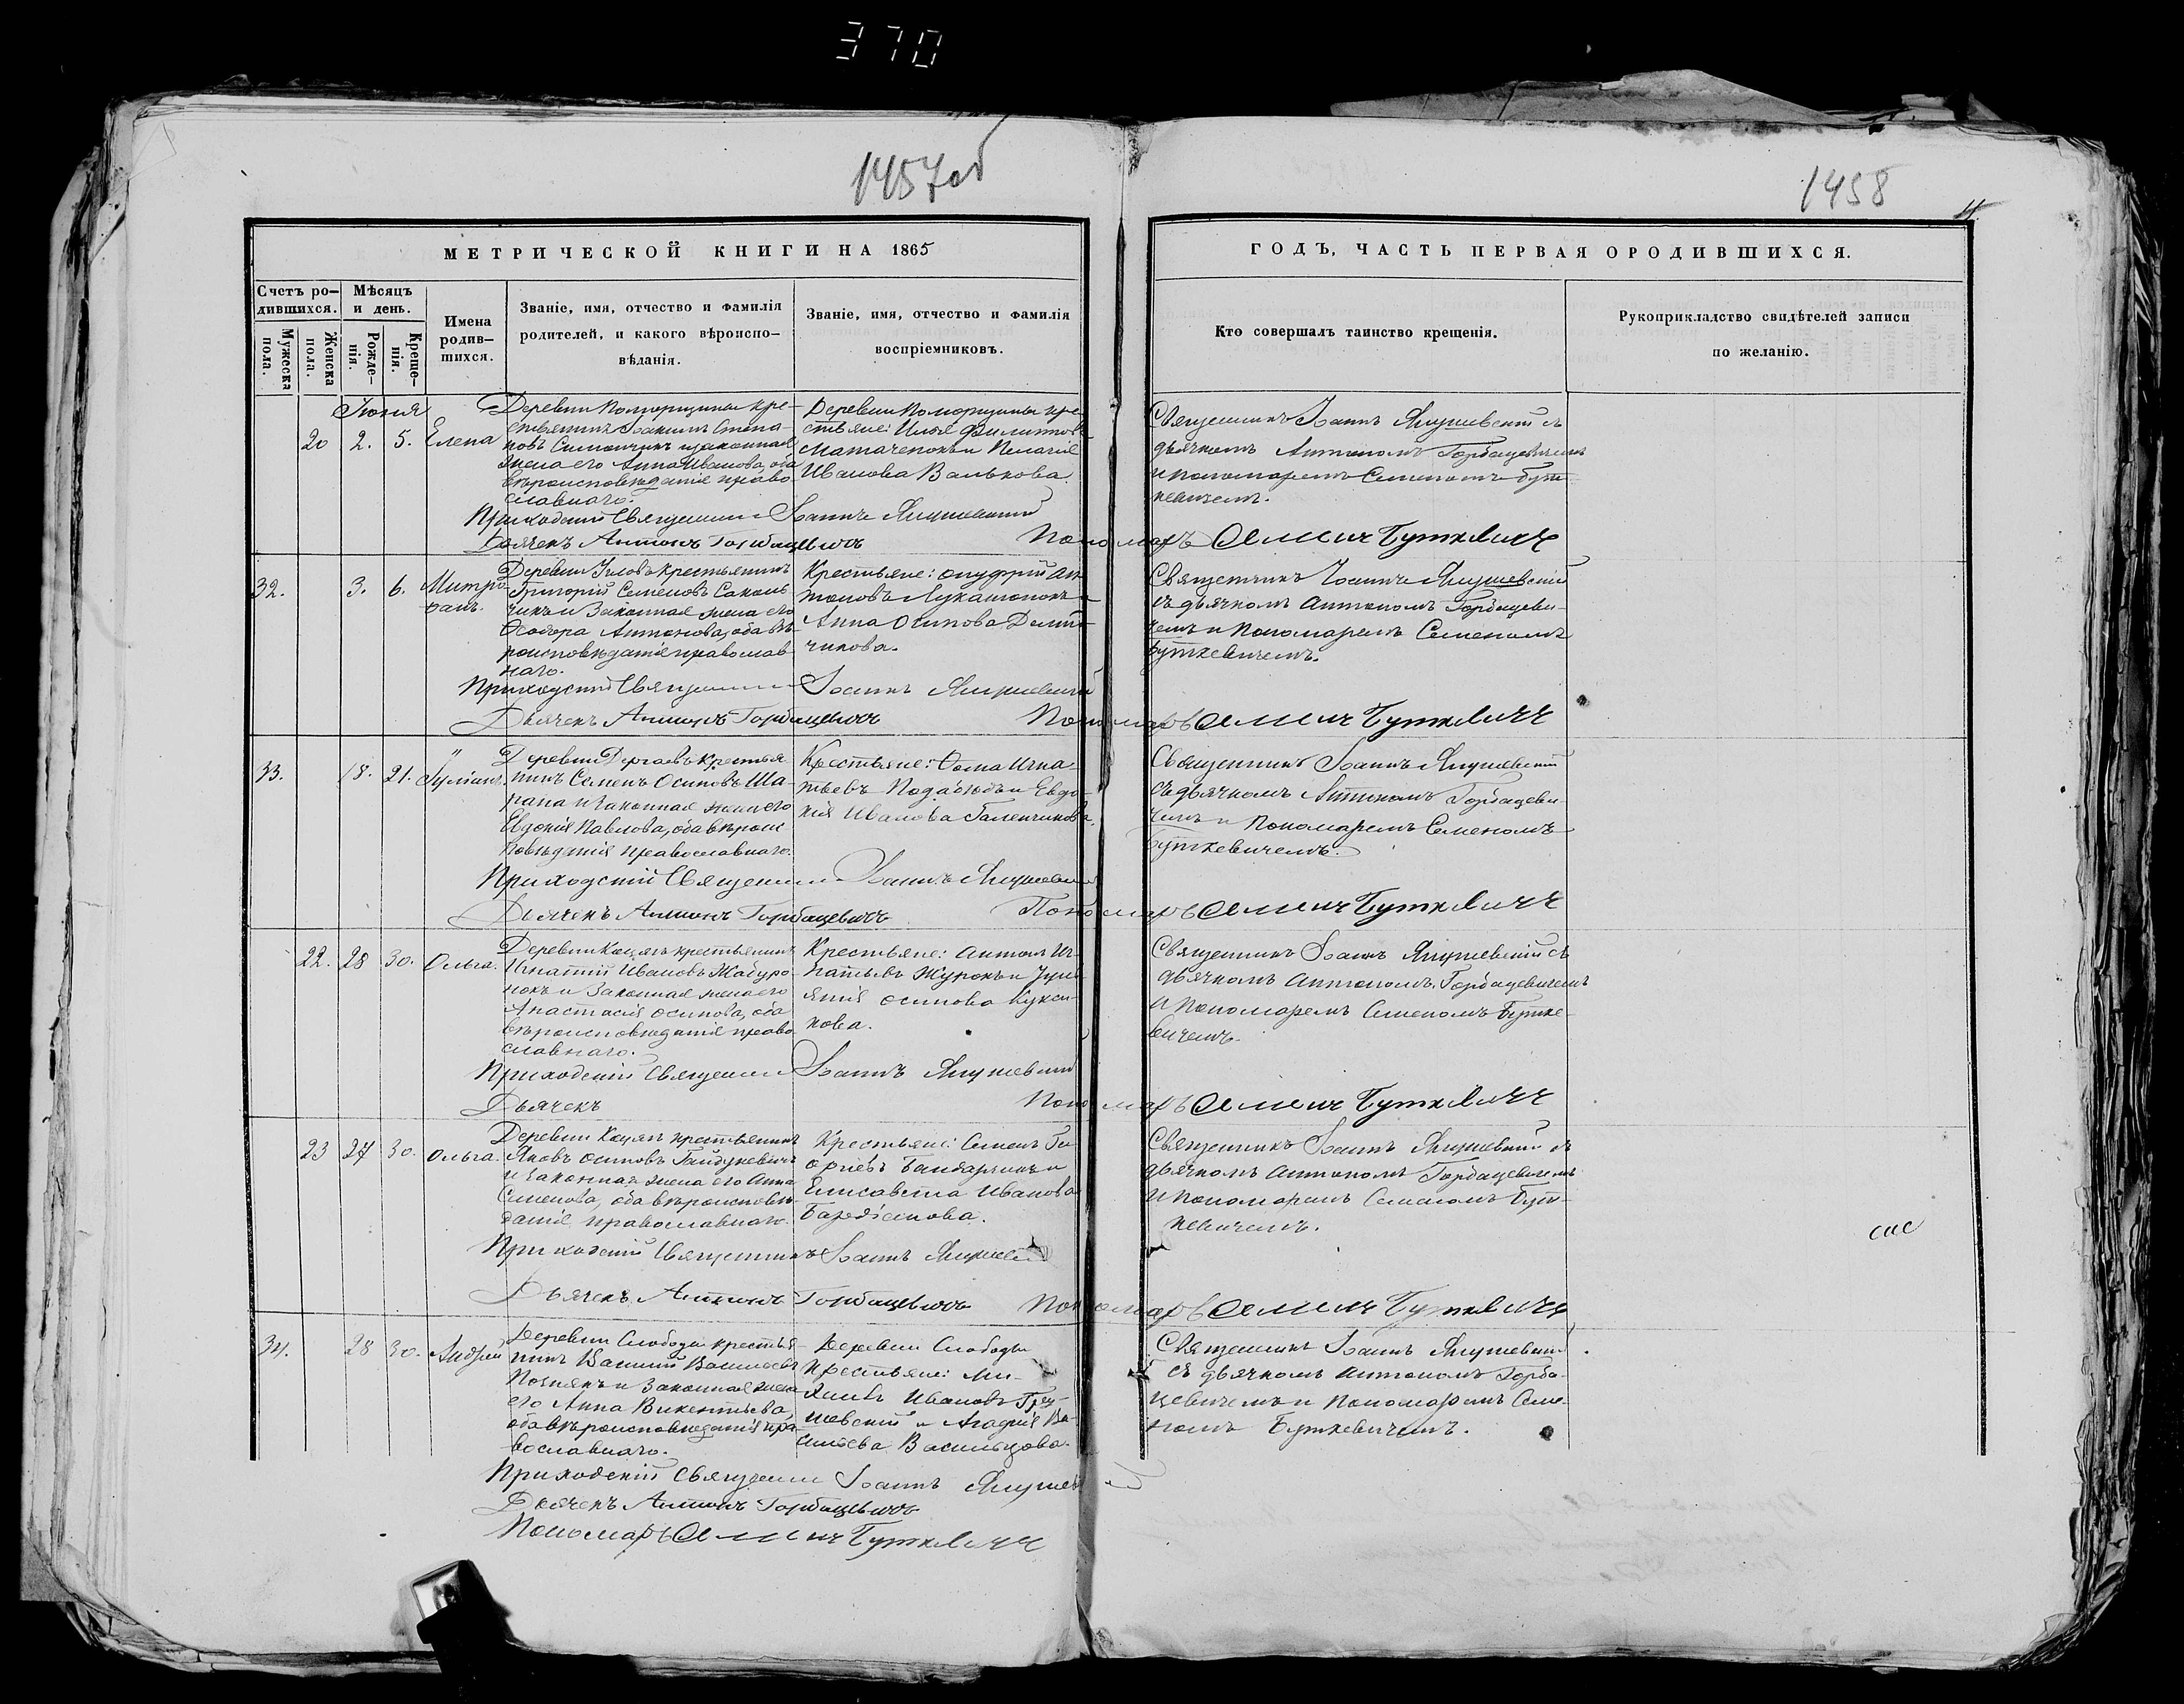 370
1457об
1458
МЕТРИЧЕСКОЙ КНИГИ НА 1865
ГОДЪ, ЧАСТЬ ПЕРВАЯ О РОДИВШИХСЯ.
Счетъ ро-
дившихся.
Мужеска
пола.
Женска
пола.
Мѣсяцъ
и день.
Рожде-
нія.
Креще-
нія.
Имена
родив-
шихся.
Званіе, имя, отчество и фамилія
родителей, и какого вѣроиспо-
вѣданія.
Званіе, имя, отчество и фамилія
воспріемниковъ.
Кто совершалъ таинство крещенія.
Рукоприкладство свидѣтелей записи
по желанію.
Іюня
20 2. 5. Елена
Деревни кре-
стьянинъ Іоакимъ Степа-
новъ и законная
жена его Анна Иванова, оба
вѣроисповѣданія право
славнаго.
Деревни кре
стьяне: Илья Филиповъ
и Пелагія
Иванова Валькова.
Священникъ Іоаннъ Янушевскій съ
дьячкомъ Антономъ Горбацевичемъ
и пономаремъ Семеномъ Бут-
кевичемъ.
Приходскій Священник Іоаннъ Янушевскій
Дьячекъ Антонъ Горбацевичъ
Пономаръ Семенъ Буткевичъ
32. 3. 6. Митро
фанъ.
Деревни крестьянинъ
Григорій Семеновъ Саколь
чикъ и Законная жена его
Ѳеодора Антонова, оба вѣ-
роисповѣданія православ
наго.
Крестьяне: Онуфрій Ан
тоновъ и
Анна Осипова
чикова.
Священникъ Іоаннъ Янушевскій
съ дьячкомъ Антономъ Горбацеви-
чемъ и Пономаремъ Семеномъ
Буткевичемъ.
Приходскій Священник Іоаннъ Янушевскій
Дьячекъ Антонъ Горбацевичъ
Пономаръ Семенъ Буткевичъ
33. 18. 21. Іуліанъ.
Деревни крестья
нинъ Семенъ Осиповъ Ша-
рапа и законная жена его
Евдокія Павлова, оба вѣроис
повѣданія православнаго.
Крестьяне: Ѳома Игна-
тьевъ и Евдо-
кія Иванова Галенчикова.
Священникъ Іоаннъ Янушевскій
съ дьячкомъ Антономъ Горбацеви
чемъ и Пономаремъ Семеномъ
Буткевичемъ.
Приходскій Священник Іоаннъ Янушевскій
Дьячекъ Антонъ Горбацевичъ
Пономаръ Семенъ Буткевичъ
22. 28 30. Ольга.
Деревни крестьянинъ
Игнатій Ивановъ Жабуро
нокъ и Законная жена его
Анастасія Осипова, оба
вѣроисповѣданія право
славнаго.
Крестьяне: Антонъ Иг-
натьевъ и
Осипова
кова.
Священникъ Іоаннъ Янушевскій съ
дьячкомъ Антономъ Горбацевичемъ
и Пономаремъ Семеномъ Бутке-
вичемъ.
Приходскій Священник Іоаннъ Янушевскій
Дьячекъ
Пономаръ Семенъ Буткевичъ
23 27 30. Ольга.
Деревни крестьянинъ
Яковъ Осиповъ Гайдукевичъ
и законная жена его Анна
Семенова, оба вѣроисповѣ-
данія православнаго.
Крестьяне: Семенъ Ге
оргіевъ Бандарчикъ и
Елисавета Иванова
Священникъ Іоаннъ Янушевскій съ
дьячкомъ Антономъ Горбацевичемъ
и Пономаремъ Семеномъ Бут-
кевичемъ.
Приходскій Священникъ Іоаннъ Янушевскій
Дьячекъ Антонъ Горбацевичъ
Пономаръ Семенъ Буткевичъ
34. 28 30. Андрей
Деревни Слободы крестья
нинъ Василій Васильевъ
Познякъ и Законная жена
его Анна Викентьева,
оба вѣроисповѣданія пра-
вославнаго.
Деревни Слободы
Крестьяне:
Ивановъ
и Агафія Ва-
сильева Васильцова.
Священникъ Іоаннъ Янушевскій
съ дьячкомъ Антономъ Горба-
цевичемъ и Пономаремъ Семе-
номъ Буткевичемъ.
Приходскій Священник Іоаннъ Янушев
Дьячекъ Антонъ Горбацевичъ
Пономаръ Семенъ Буткевичъ